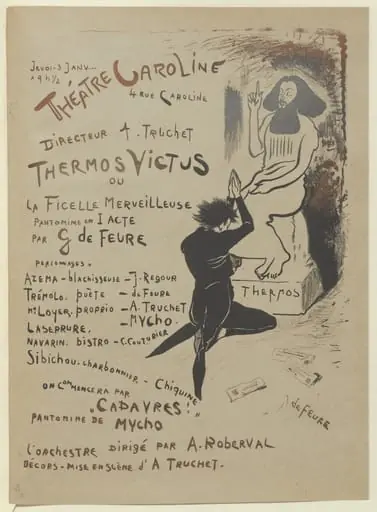 Jeudi-3 Janv-
à 9h½
Théâtre Caroline
4 rue Caroline
Directeur A. Truchet
Thermos Victus
ou
La Ficelle Merveilleuse
Pantomime en 1 acte
par G de Feure
Personnages.
Azema - blachisseuse - J. Regour
Trémolo. poëte - de Feure
Mr Loyer. proprio - A. Truchet
Laseprure. - Mycho.
Navarin. bistro - C. Couturier
Sibichou. charbonnier. - Chiquine
on commencera par
"Cadavres"
pantomine de Mycho
L'orchestre dirigé par A. Roberval
Décors - mise en scène d'A Truchet.
Thermos
J. de Feure